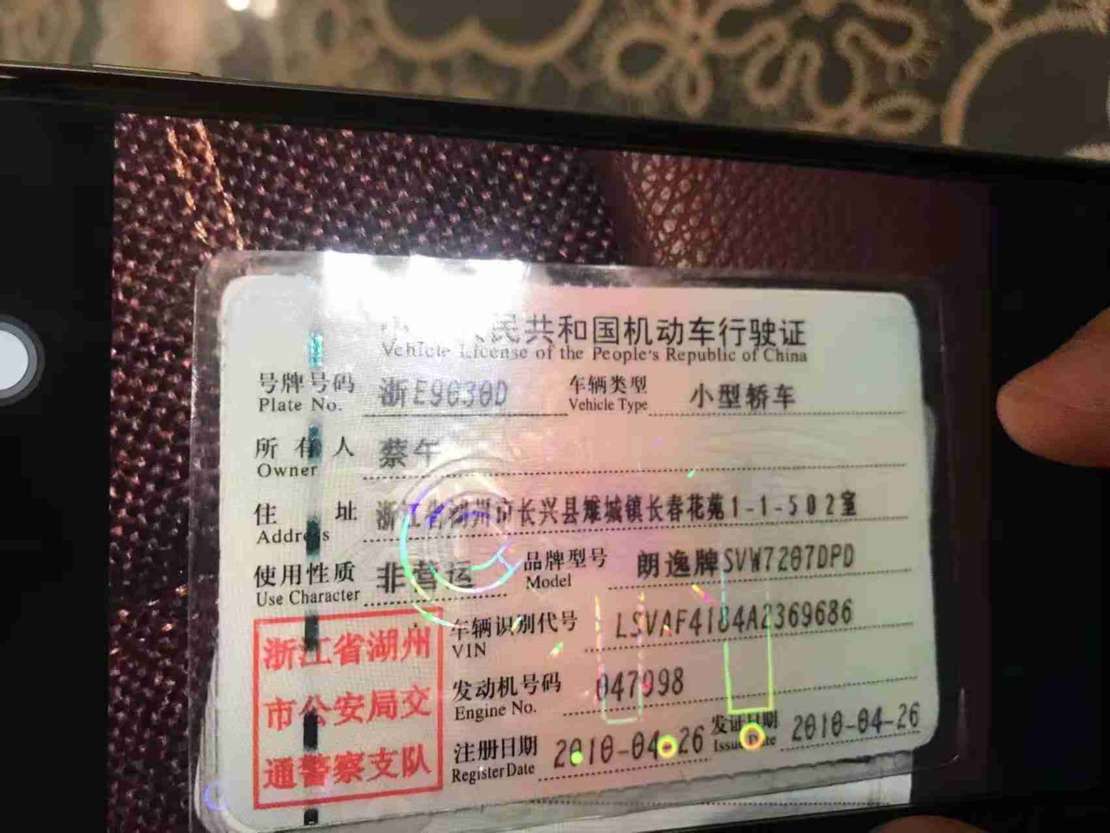 民共和国机动车行驶证
Vehicle License of the People's Republic of China
号牌号码 浙E9030D 车辆类型 小型轿车
Plate No. Vehicle Type
所有人 蔡午
Owner
住址 浙江省湖州市长兴县雉城镇长春花苑1-1-502室
Address
使用性质 非营运 品牌型号 朗逸牌SVW7207DPD
Use Character Model
浙江省湖州 车辆识别代号 LSVAF4184A2369686
VIN
市公安局交 发动机号码 047998
Engine No.
通警察支队 注册日期 2010-04-26 发证日期 2010-04-26
Register Date Issue Date